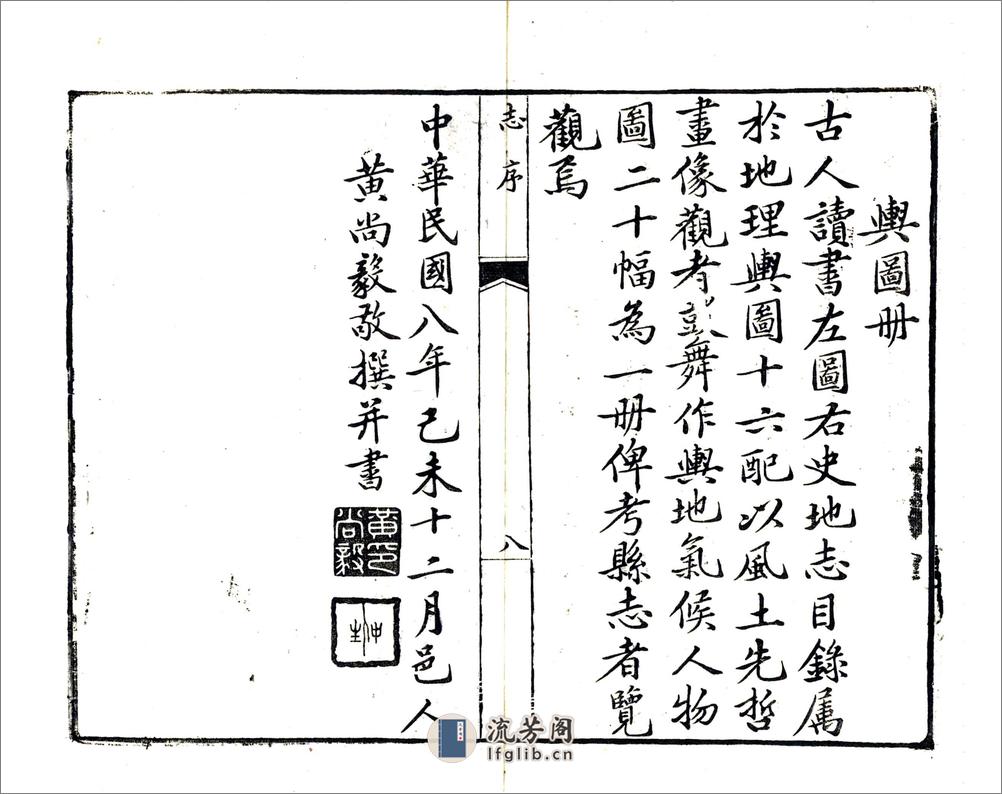 輿圖册
古人讀書左圖右史地志目錄属
於地理輿圖十六配以風土先哲
畫像觀者鼓舞作輿地氣候人物
圖二十幅為一册俾考縣志者覽
觀焉
志序
八
中華民國八年己未十二月邑人
黄尚毅敬撰并書
黃尚毅印
仲生
流芳阁
lfglib.cn